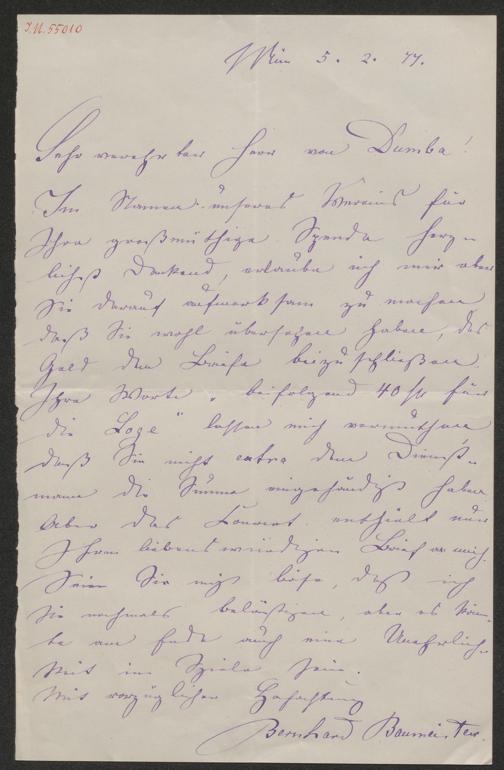 I.N.55010
Wien 5. 2. 77.
Sehr verehrter Herr von Dumba!
Im Namen unseres Vereins für
Ihre großmüthige Spende herz-
lichst Dankend, erlaube ich mir aber
Sie darauf aufmerksam zu machen
daß Sie wohl übersehen haben, das
Geld dem Briefe beizuschließen.
Ihre Worte „beifolgend 40 fl für
die Loge" lassen mich vermuthen
daß Sie nicht extra dem Dienst-
mann die Summe eingehändigt haben
Aber das Couvert enthielt nur
Ihren liebenswürdigen Brief an mich.
Seien Sie nicht böse, daß ich
Sie nochmals belästige, aber es könn-
te am Ende auch eine Unehrlich-
keit im Spiele sein.
Mit vorzüglicher Hochachtung
Bernhard Baumeister.